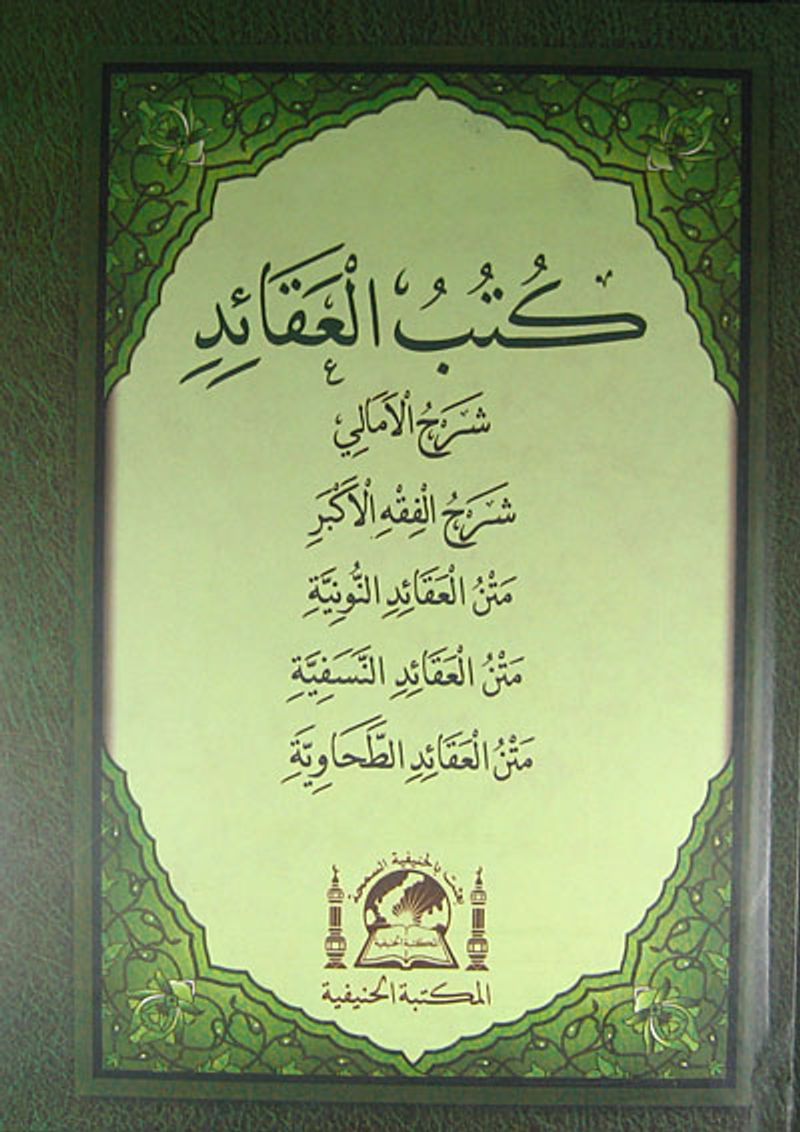 كُتُبُ الْعَقَائِدِ
شَرَحُ الْاَمَالِي
شَرَحُ الْفِقْهِ الْاَكْبَرِ
مَتْنُ الْعَقَائِدِ النُّونِيَّةِ
مَتْنُ الْعَقَائِدِ النَّسَفِيَّةِ
مَتْنُ الْعَقَائِدِ الطَّحَاوِيَّةِ
بعثت بالحنيفية السمحة
المكتبة الحنيفية
المكتبة الحنيفية